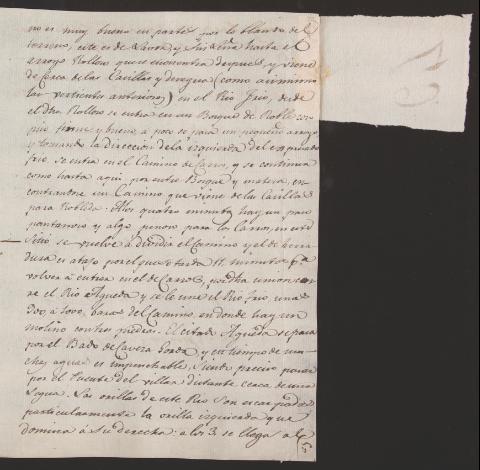 no es muy bueno en partes por lo blando del
terreno, este es de Xaxa, y sin Leña hasta el
arroyo Rollos que se encuentra despues, y viene
de cerca de las Casillas y desagua (como asimismo
las vertientes anteriores) en el Rio Frio, desde
el dho Rollos se entra en un Bosque de Roble
piso firme y bueno, à poco se pasa un pequeño arroyo
y tomando la dirección de la izquierda del expresado
frio, se entra en el Camino de Carros, y se continua
como hasta aqui por entre Bosque y matera, en-
contrandose un Camino que viene de las Casillas
para Robleda: A los quatro minutos hay un paso
pantanoso y algo penoso para los Carros, en este
Sitio se vuelve à dividir el Camino y el de herra
dura es atajo por el que se tarda 11 minutos pa
volver à entrar en el de Carros, en dha union
el Rio Agueda, y se le une el Rio frio, unas
300, à 1000, baras del Camino, en donde hay un
molino con tres piedras: El citado Agueda se pasa
por el Bado de Cavera Gorda, y en tiempo de mu-
chas aguas es impenetrable, siendo preciso pasar
por el Puente del Villar distante cerca de una
Legua. Las orillas de este Rio son escarpadas
particularmente la orilla izquierda que
domina à su derecha: a los 3. se llega al